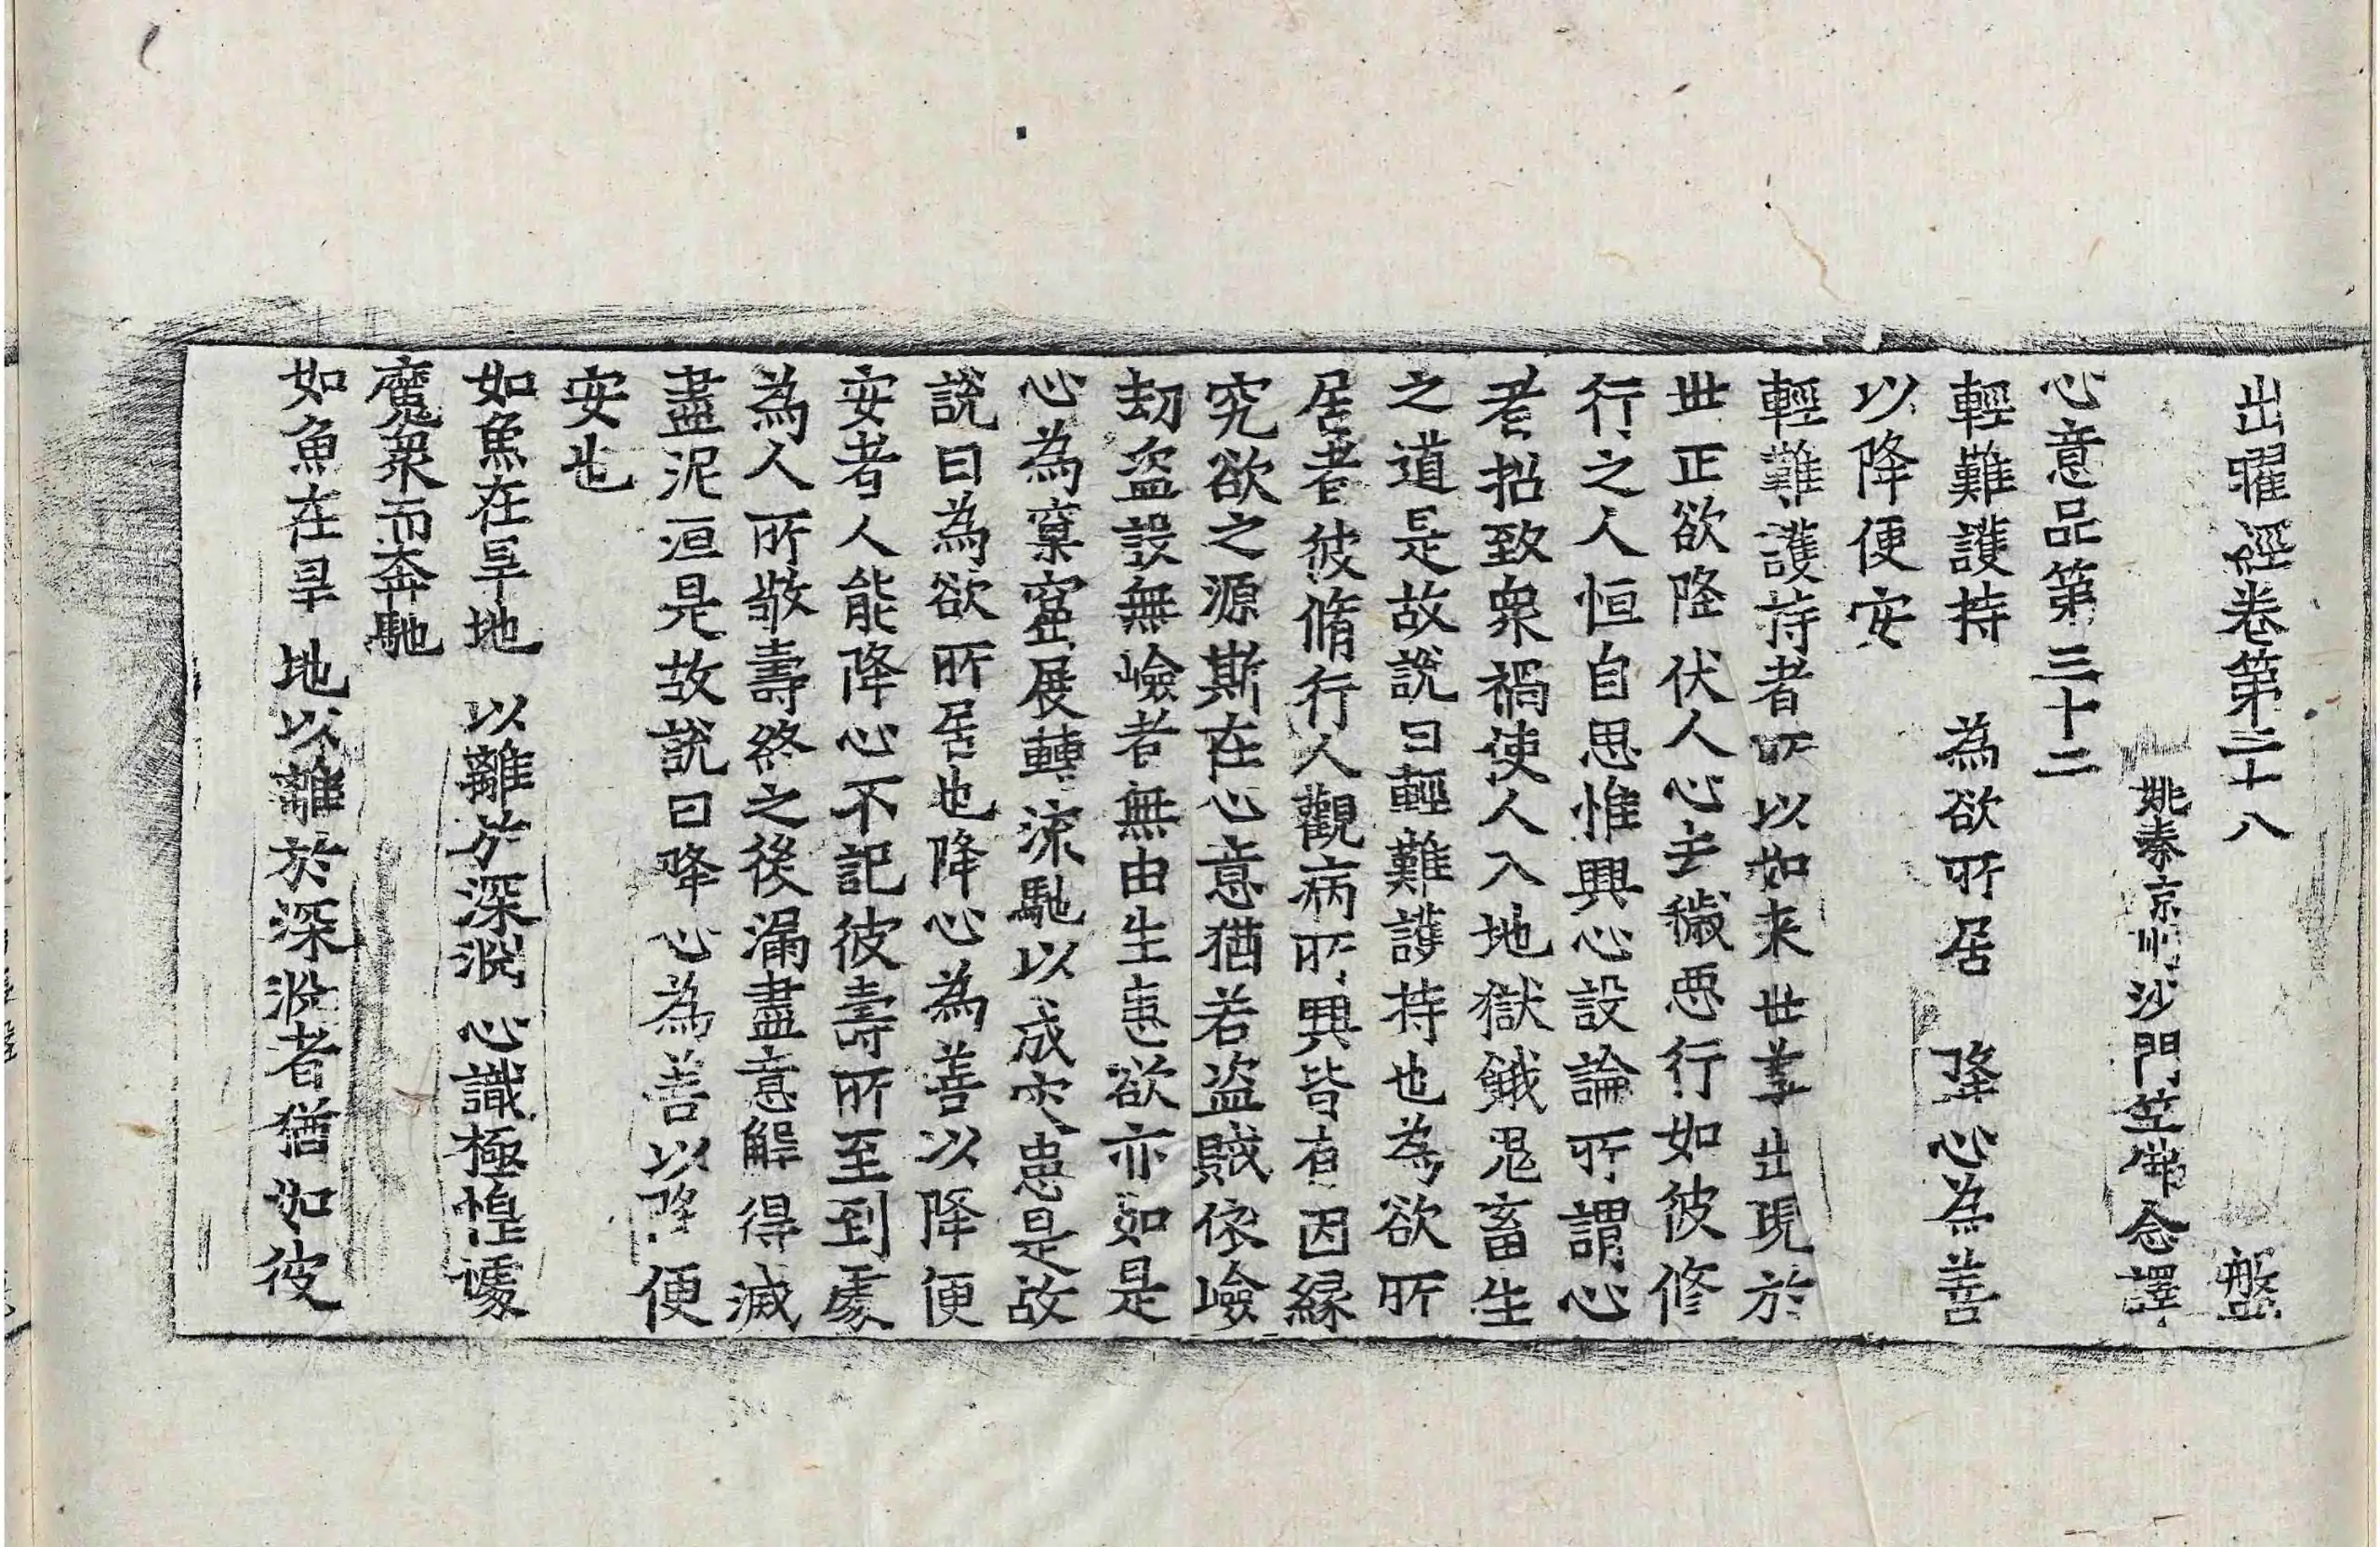 出曜經卷第二十八 盤
姚秦京州沙門竺佛念譯
心意品第三十二
輕難護持 為欲所居 降心為善
以降便安
輕難護持者所以如来世尊出現於
世正欲降伏人心去穢惡行如彼修
行之人恒自思惟興心設論所謂心
者招致衆禍使人入地獄餓鬼畜生
之道是故說曰輕難護持也為欲所
居者彼脩行人觀病所興皆有因縁
究欲之源斯在心意猶若盗賊依嶮
劫盗設無嶮者無由生恚欲亦如是
心為窠窟展轉流馳以成灾患是故
說曰為欲所居也降心為善以降便
安者人能降心不記彼壽所至到處
為人所敬壽終之後漏盡意解得滅
盡泥洹是故說曰降心為善以降便
安也
如魚在旱地 以離於深渕 心識極惶遽
魔衆而奔馳
如魚在旱地以離於深渕者猶如彼